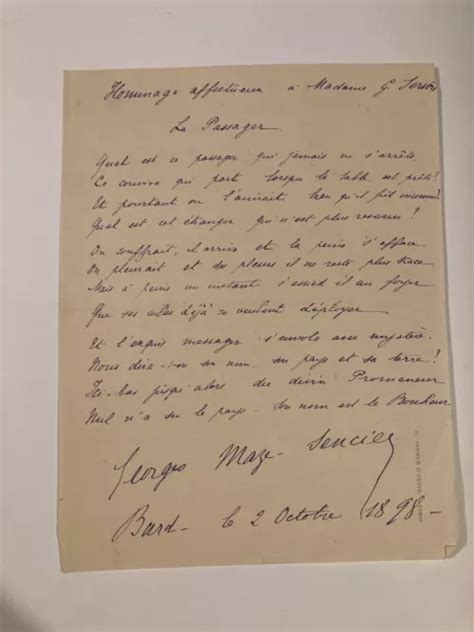 Hommage affectueux à Madame G.
Le Passager.
Quel est ce passager qui jamais ne s'arrête,
Ce convive qui part lorsque la table est prête?
Et pourtant on l'aimait bien qu'il fût inconnu?
Quel est cet étranger qui n'est plus revenu?
On souffrait, il arrive et la peine s'efface.
On pleurait et des pleurs il ne reste plus trace
Mais à peine un instant s'assied il au foyer
Que ses ailes déjà se veulent déployer
Et l'exquis messager s'envole avec mystère.
Nous dira-t-on son nom, son pays et sa terre?
Ici-bas jusqu'alors du divin Promeneur
Nul n'a su le pays. Son nom est le Bonheur
Georges Maze-Sencier
Bard - le 2 Octobre 1898 -